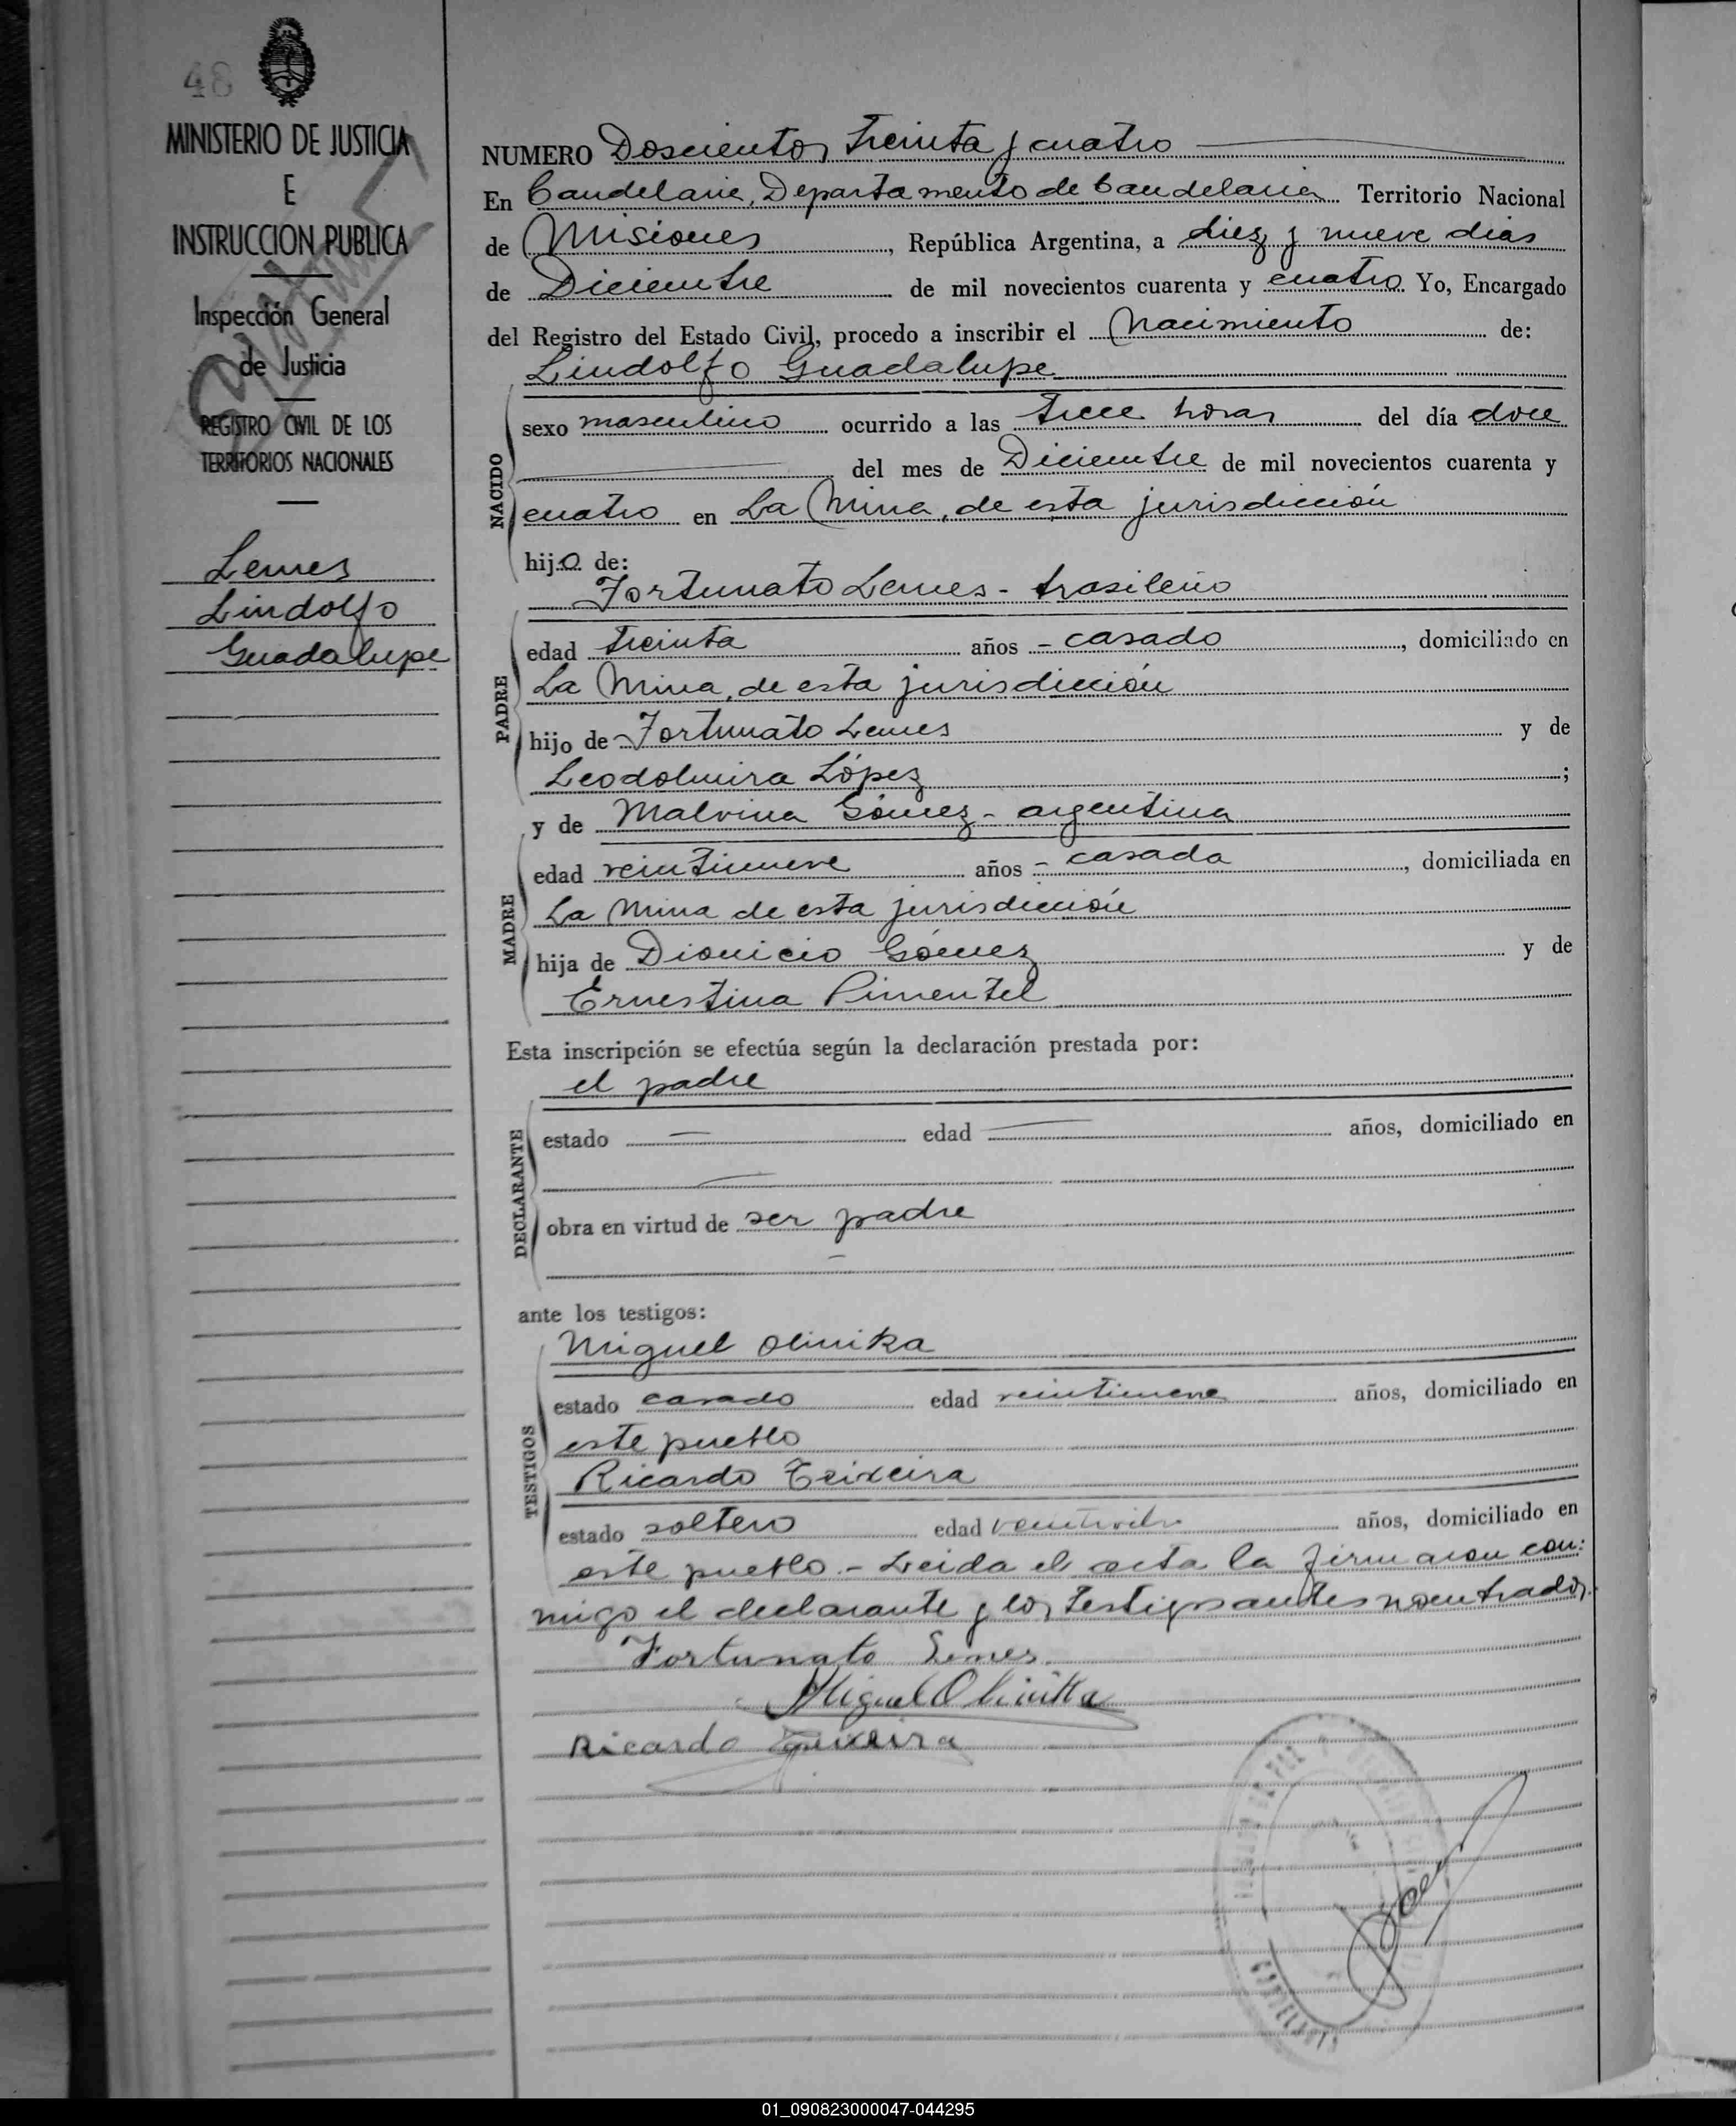 48
MINISTERIO DE JUSTICIA
E
INSTRUCCION PUBLICA
Inspección General
de Justicia
REGISTRO CIVIL DE LOS
TERRITORIOS NACIONALES
Lemes
Lindolfo
Guadalupe
NUMERO Doscientos treinta y cuatro
En Candelaria, Departamento de Candelaria Territorio Nacional
de Misiones, República Argentina, a diez y nueve dias
de Diciembre de mil novecientos cuarenta y cuatro Yo, Encargado
del Registro del Estado Civil, procedo a inscribir el Nacimiento de:
Lindolfo Guadalupe
NACIDO
sexo masculino ocurrido a las trece horas del día doce
del mes de Diciembre de mil novecientos cuarenta y
cuatro en La Mina, de esta jurisdicción
hijo de:
Fortunato Lemes - brasileño
PADRE
edad treinta años - casado, domiciliado en
La Mina, de esta jurisdicción
hijo de Fortunato Lemes y de
Leodolmira López;
y de Malvina Gómez - argentina
MADRE
edad veintinueve años - casada, domiciliada en
La Mina de esta jurisdicción
hija de Dionicio Gómez y de
Ernestina Pimentel
Esta inscripción se efectúa según la declaración prestada por:
el padre
DECLARANTE
estado — edad — años, domiciliado en
obra en virtud de ser padre
ante los testigos:
Miguel Olinika
TESTIGOS
estado casado edad veintinueve años, domiciliado en
este pueblo
Ricardo Teixeira
estado soltero edad años, domiciliado en
este pueblo.- Leida el acta la firmaron con:
migo el declarante y los testigos antes nombrados.
Fortunato Lemes.
Miguel Olinika
Ricardo Teixeira
CANDELARIA
01_090823000047-044295